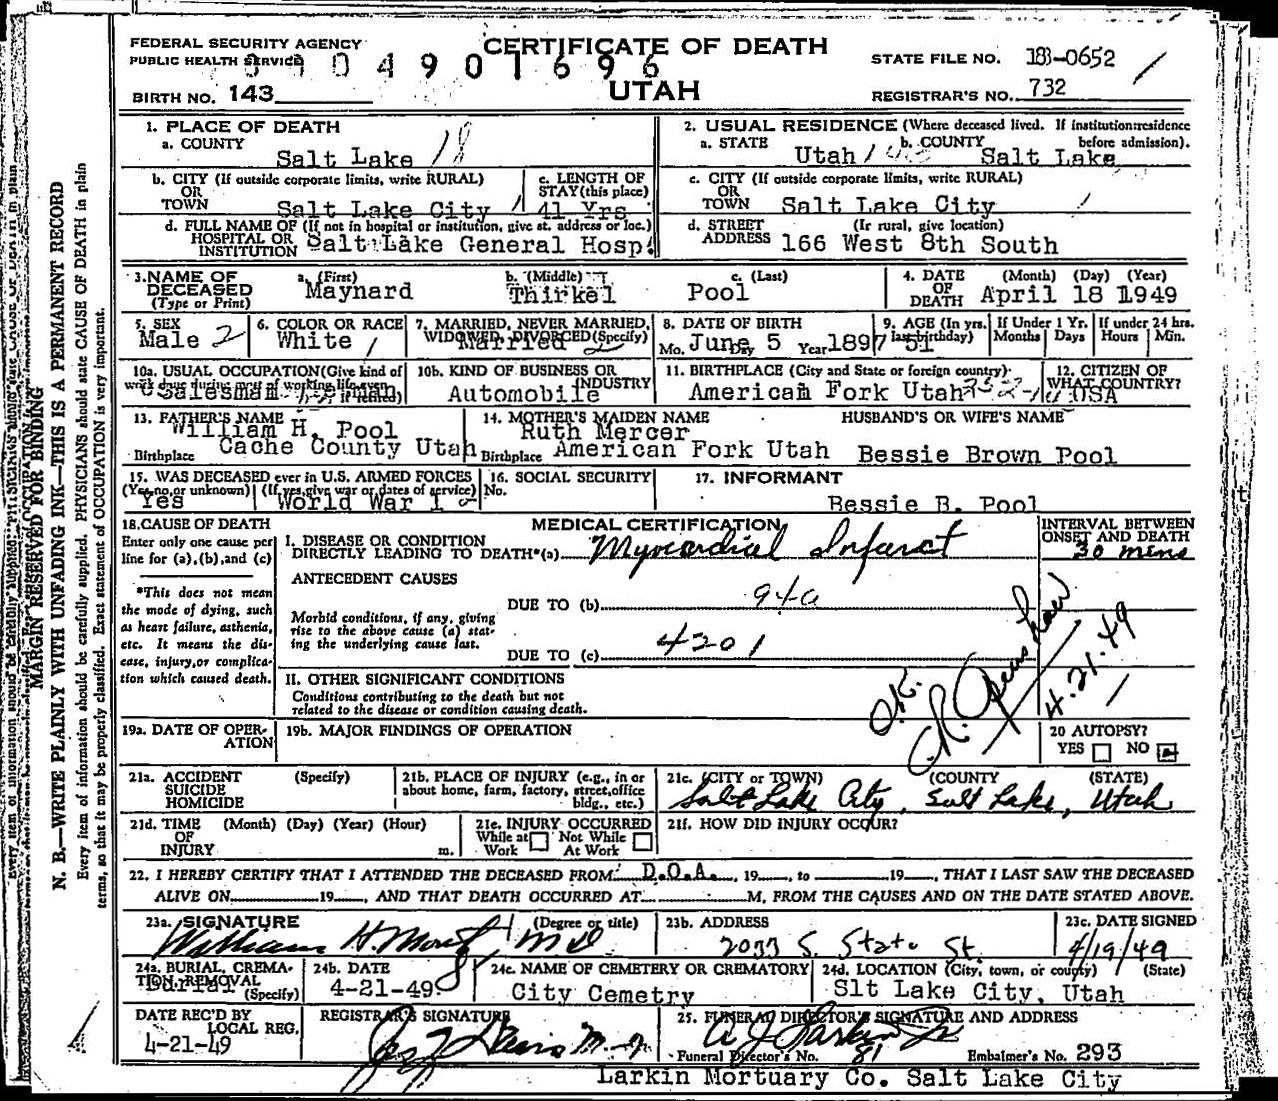 FEDERAL SECURITY AGENCY
PUBLIC HEALTH SERVICE
CERTIFICATE OF DEATH
UTAH
04901696
STATE FILE NO. 18-0652
BIRTH NO. 143
REGISTRAR'S NO. 732
1. PLACE OF DEATH
a. COUNTY Salt Lake 18
2. USUAL RESIDENCE (Where deceased lived. If institution:residence before admission).
a. STATE Utah b. COUNTY Salt Lake
b. CITY (If outside corporate limits, write RURAL) OR TOWN Salt Lake City
c. LENGTH OF STAY (this place) 41 Yrs
c. CITY (If outside corporate limits, write RURAL) OR TOWN Salt Lake City
d. FULL NAME OF (If not in hospital or institution, give st. address or loc.) HOSPITAL OR INSTITUTION Salt Lake General Hosp.
d. STREET ADDRESS (If rural, give location) 166 West 8th South
3. NAME OF DECEASED (Type or Print)
a. (First) Maynard
b. (Middle) Thirkel
c. (Last) Pool
4. DATE OF DEATH (Month) (Day) (Year) April 18 1949
5. SEX Male 2
6. COLOR OR RACE White 1
7. MARRIED, NEVER MARRIED, WIDOWED, DIVORCED (Specify) Married 2
8. DATE OF BIRTH Mo. June Day 5 Year 1897
9. AGE (In yrs. last birthday) 51
If Under 1 Yr. Months Days
If under 24 hrs. Hours Min.
10a. USUAL OCCUPATION (Give kind of work done during most of working life, even if retired) Salesman
10b. KIND OF BUSINESS OR INDUSTRY Automobile
11. BIRTHPLACE (City and State or foreign country) American Fork Utah
12. CITIZEN OF WHAT COUNTRY? USA
13. FATHER'S NAME William H. Pool
Birthplace Cache County Utah
14. MOTHER'S MAIDEN NAME Ruth Mercer
Birthplace American Fork Utah
HUSBAND'S OR WIFE'S NAME
Bessie Brown Pool
15. WAS DECEASED ever in U.S. ARMED FORCES
(Yes, no, or unknown) (If yes, give war or dates of service)
Yes World War I
16. SOCIAL SECURITY No.
17. INFORMANT
Bessie B. Pool
18. CAUSE OF DEATH
Enter only one cause per line for (a), (b), and (c)
*This does not mean the mode of dying, such as heart failure, asthenia, etc. It means the disease, injury, or complication which caused death.
MEDICAL CERTIFICATION
I. DISEASE OR CONDITION DIRECTLY LEADING TO DEATH*(a) Myocardial Infarct
INTERVAL BETWEEN ONSET AND DEATH
30 mins
ANTECEDENT CAUSES
DUE TO (b) 94a
Morbid conditions, if any, giving rise to the above cause (a) stating the underlying cause last.
DUE TO (c) 4201
O.K.
4.21.49
II. OTHER SIGNIFICANT CONDITIONS
Conditions contributing to the death but not related to the disease or condition causing death.
19a. DATE OF OPERATION
19b. MAJOR FINDINGS OF OPERATION
20 AUTOPSY?
YES NO
21a. ACCIDENT SUICIDE HOMICIDE (Specify)
21b. PLACE OF INJURY (e.g., in or about home, farm, factory, street, office bldg., etc.)
21c. (CITY or TOWN) (COUNTY (STATE)
Salt Lake City, Salt Lake, Utah
21d. TIME OF INJURY (Month) (Day) (Year) (Hour) m.
21e. INJURY OCCURRED
While at Work Not While At Work
21f. HOW DID INJURY OCCUR?
22. I HEREBY CERTIFY THAT I ATTENDED THE DECEASED FROM D.O.A., 19, to 19, THAT I LAST SAW THE DECEASED
ALIVE ON 19, AND THAT DEATH OCCURRED AT M, FROM THE CAUSES AND ON THE DATE STATED ABOVE.
23a. SIGNATURE (Degree or title)
William H. M.D.
23b. ADDRESS
2033 S. State St.
23c. DATE SIGNED
4/19/49
24a. BURIAL, CREMATION, REMOVAL (Specify) Burial
24b. DATE
4-21-49
24c. NAME OF CEMETERY OR CREMATORY
City Cemetry
24d. LOCATION (City, town, or county) (State)
Slt Lake City, Utah
DATE REC'D BY LOCAL REG.
4-21-49
REGISTRAR'S SIGNATURE
25. FUNERAL DIRECTOR'S SIGNATURE AND ADDRESS
Funeral Director's No. 81
Embalmer's No. 293
Larkin Mortuary Co. Salt Lake City
MARGIN RESERVED FOR BINDING
N. B.—WRITE PLAINLY WITH UNFADING INK—THIS IS A PERMANENT RECORD
Every item of information should be carefully supplied. PHYSICIANS should state CAUSE OF DEATH in plain
terms, so that it may be properly classified. Exact statement of OCCUPATION is very important.